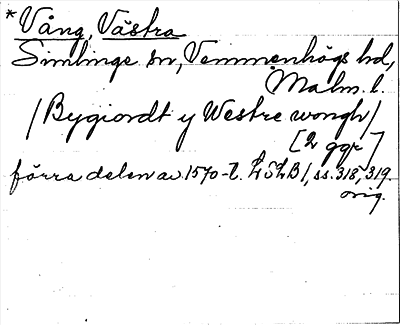 * Vång, Västra
Simlinge sn, Vemmenhögs hd,
Malm. l.
/Bygiordt y Westre wongh/
[2 ggr]
förra delen av 1570-t. LSLB1, ss. 318, 319.
orig.